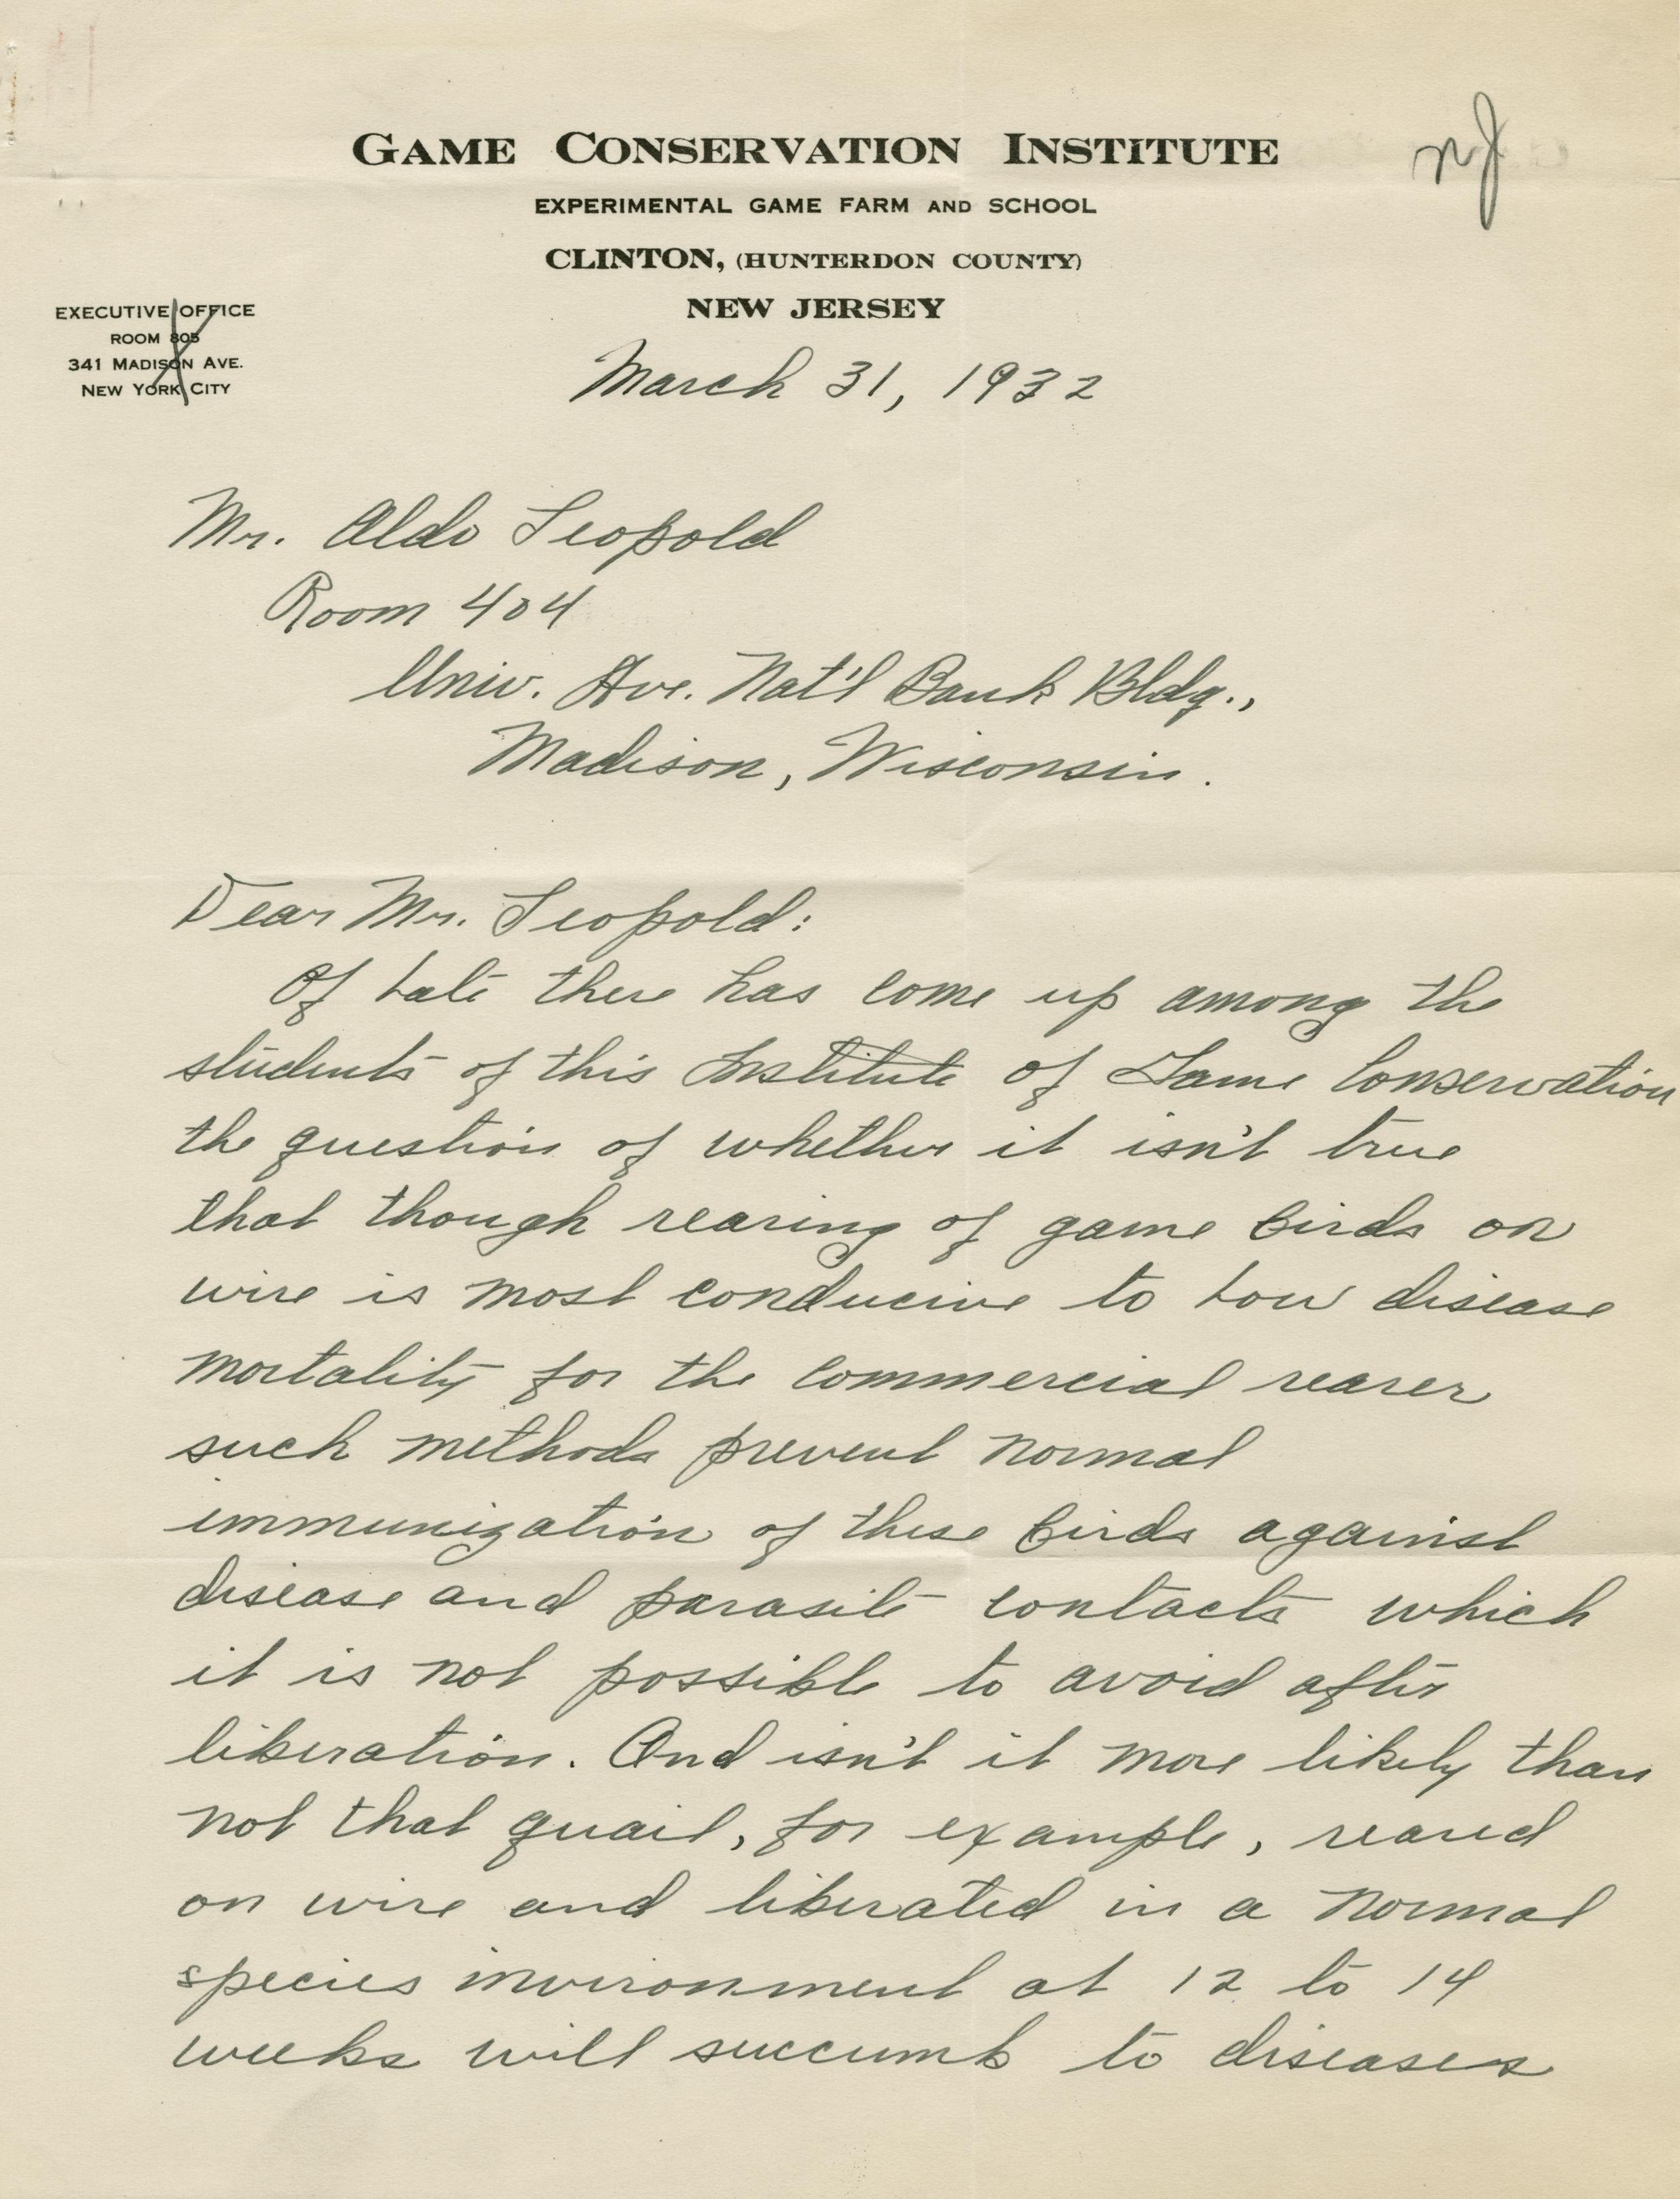 GAME CONSERVATION INSTITUTE
EXPERIMENTAL GAME FARM AND SCHOOL
CLINTON, (HUNTERDON COUNTY)
NEW JERSEY
NJ
EXECUTIVE OFFICE
ROOM 805
341 MADISON AVE.
NEW YORK CITY
March 31, 1932
Mr. Aldo Leopold
Room 404
Univ. Ave. Nat'l Bank Bldg.,
Madison, Wisconsin.
Dear Mr. Leopold:
Of late there has come up among the
students of this Institute of Game Conservation
the question of whether it isn't true
that though rearing of game birds on
wire is most conducive to low disease
mortality for the commercial rearer
such methods prevent normal
immunization of these birds against
disease and parasite contacts which
it is not possible to avoid after
liberation. And isn't it more likely than
not that quail, for example, reared
on wire and liberated in a normal
species invironment at 12 to 14
weeks will succumb to diseases